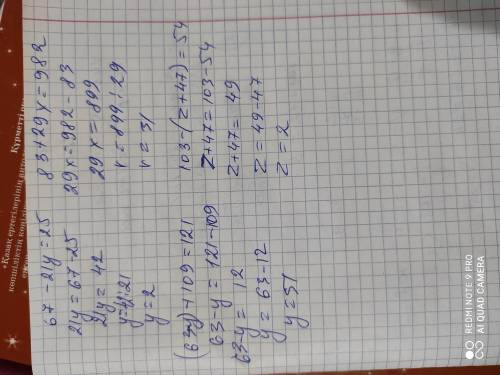 67 - 21y = 25
21y = 67-25
21y = 42
y=42:21
y = 2
83+29x=982
29x=982-83
29x = 899
x = 899:29
x = 31
(63-y)+109=121
63-y = 121-109
63-y = 12
y = 63-12
y=51
103-(z+47)=54
z+47=103-54
z+47= 49
z = 49-47
z = 2
Құрметті
• Қазақ ертегілерінің
көпшіліктің көңіл
REDMI NOTE 9 PRO
AI QUAD CAMERA